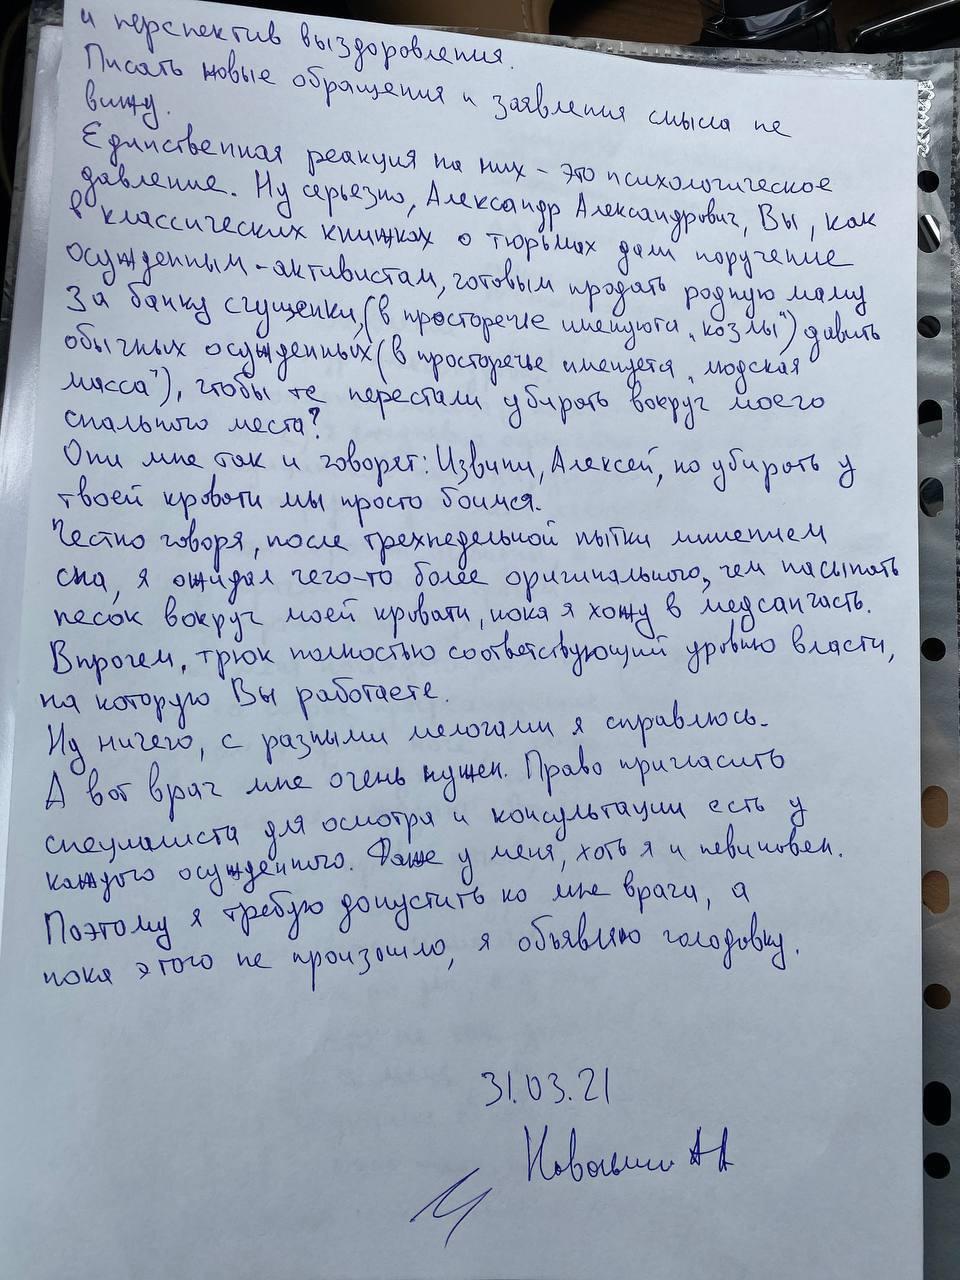 и перспектив выздоровления.
Писать новые обращения и заявления смысла не
вижу.
Единственная реакция на них – это психологическое
давление. Ну серьезно, Александр Александрович, Вы, как
в классических книжках о тюрьмах дали поручение
осужденным-активистам, готовым продать родную маму
за банку сгущенки, (в просторечие именуются „козлы") давить
обычных осужденных (в просторечье именуется „людская
масса"), чтобы те перестали убирать вокруг моего
спального места?
Они мне так и говорят: Извини, Алексей, но убирать у
твоей кровати мы просто боимся.
Честно говоря, после трехнедельной пытки лишением
сна, я ожидал чего-то более оригинального, чем насыпать
песок вокруг моей кровати, пока я хожу в медсанчасть.
Впрочем, трюк полностью соответствующий уровню власти,
на которую Вы работаете.
Ну ничего, с разными мелочами я справлюсь.
А вот врач мне очень нужен. Право пригласить
специалиста для осмотра и консультации есть у
каждого осужденного. Даже у меня, хоть я и невиновен.
Поэтому я требую допустить ко мне врача, а
пока этого не произошло, я объявляю голодовку.
31.03.21
Навальный АА